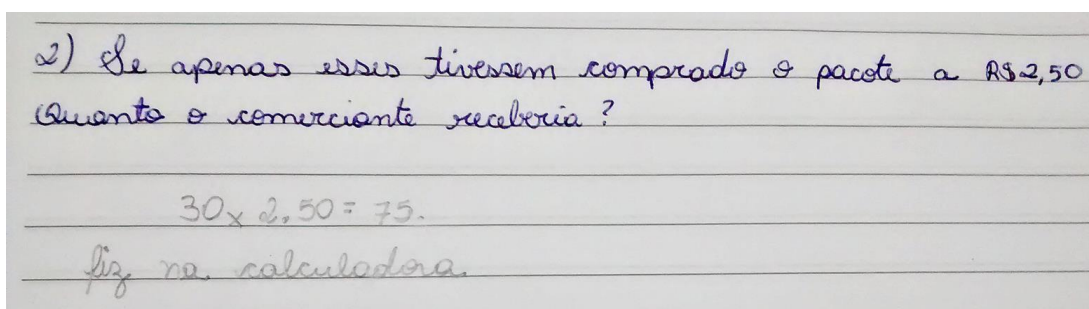 2) Se apenas esses tivessem comprado o pacote a R$2,50
Quanto o comerciante receberia?
30x 2,50 = 75.
fiz na calculadora.